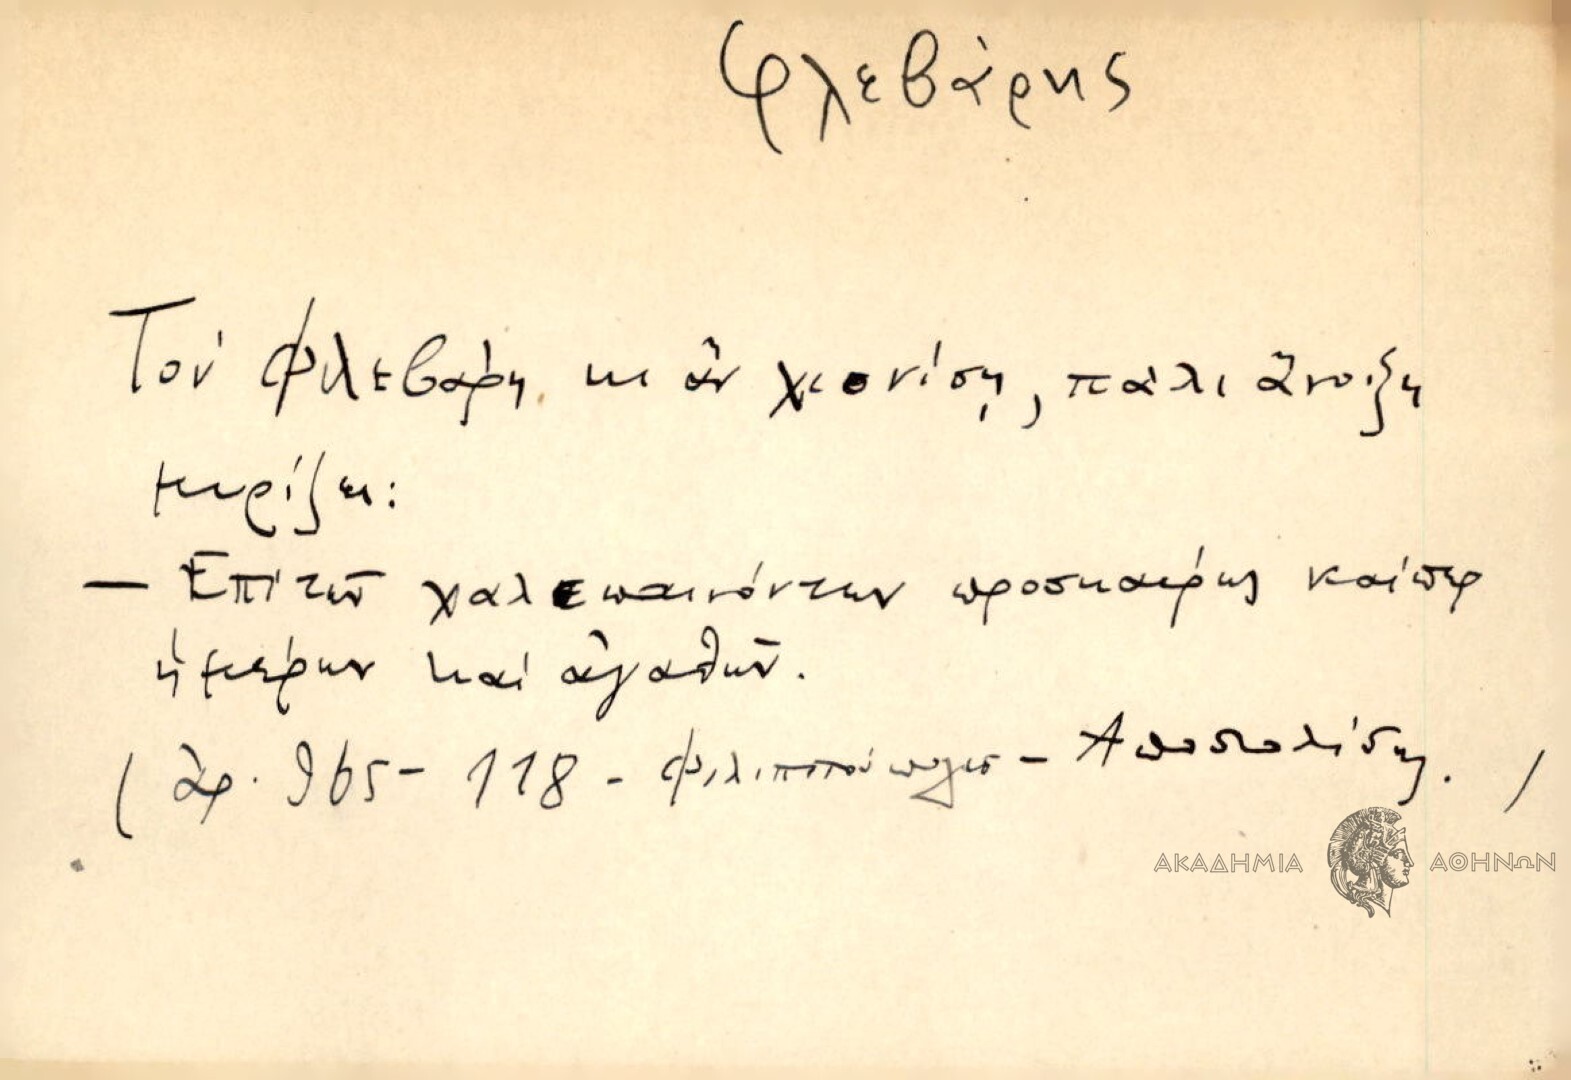 Φλεβάρης
Τον Φλεβάρη κι ἂν χιονίσῃ, πάλι ἄνοιξη
μυρίζει:
— Ἐπί τῶν χαλεπαινόντων προσκαίρως καίπερ
ἡμέρων καί ἀγαθῶν.
(ἀρ. 965 - 118 - Φιλιππούπολις - Ἀποστολίδης.)
ΑΚΑΔΗΜΙΑ ΑΘΗΝΩΝ